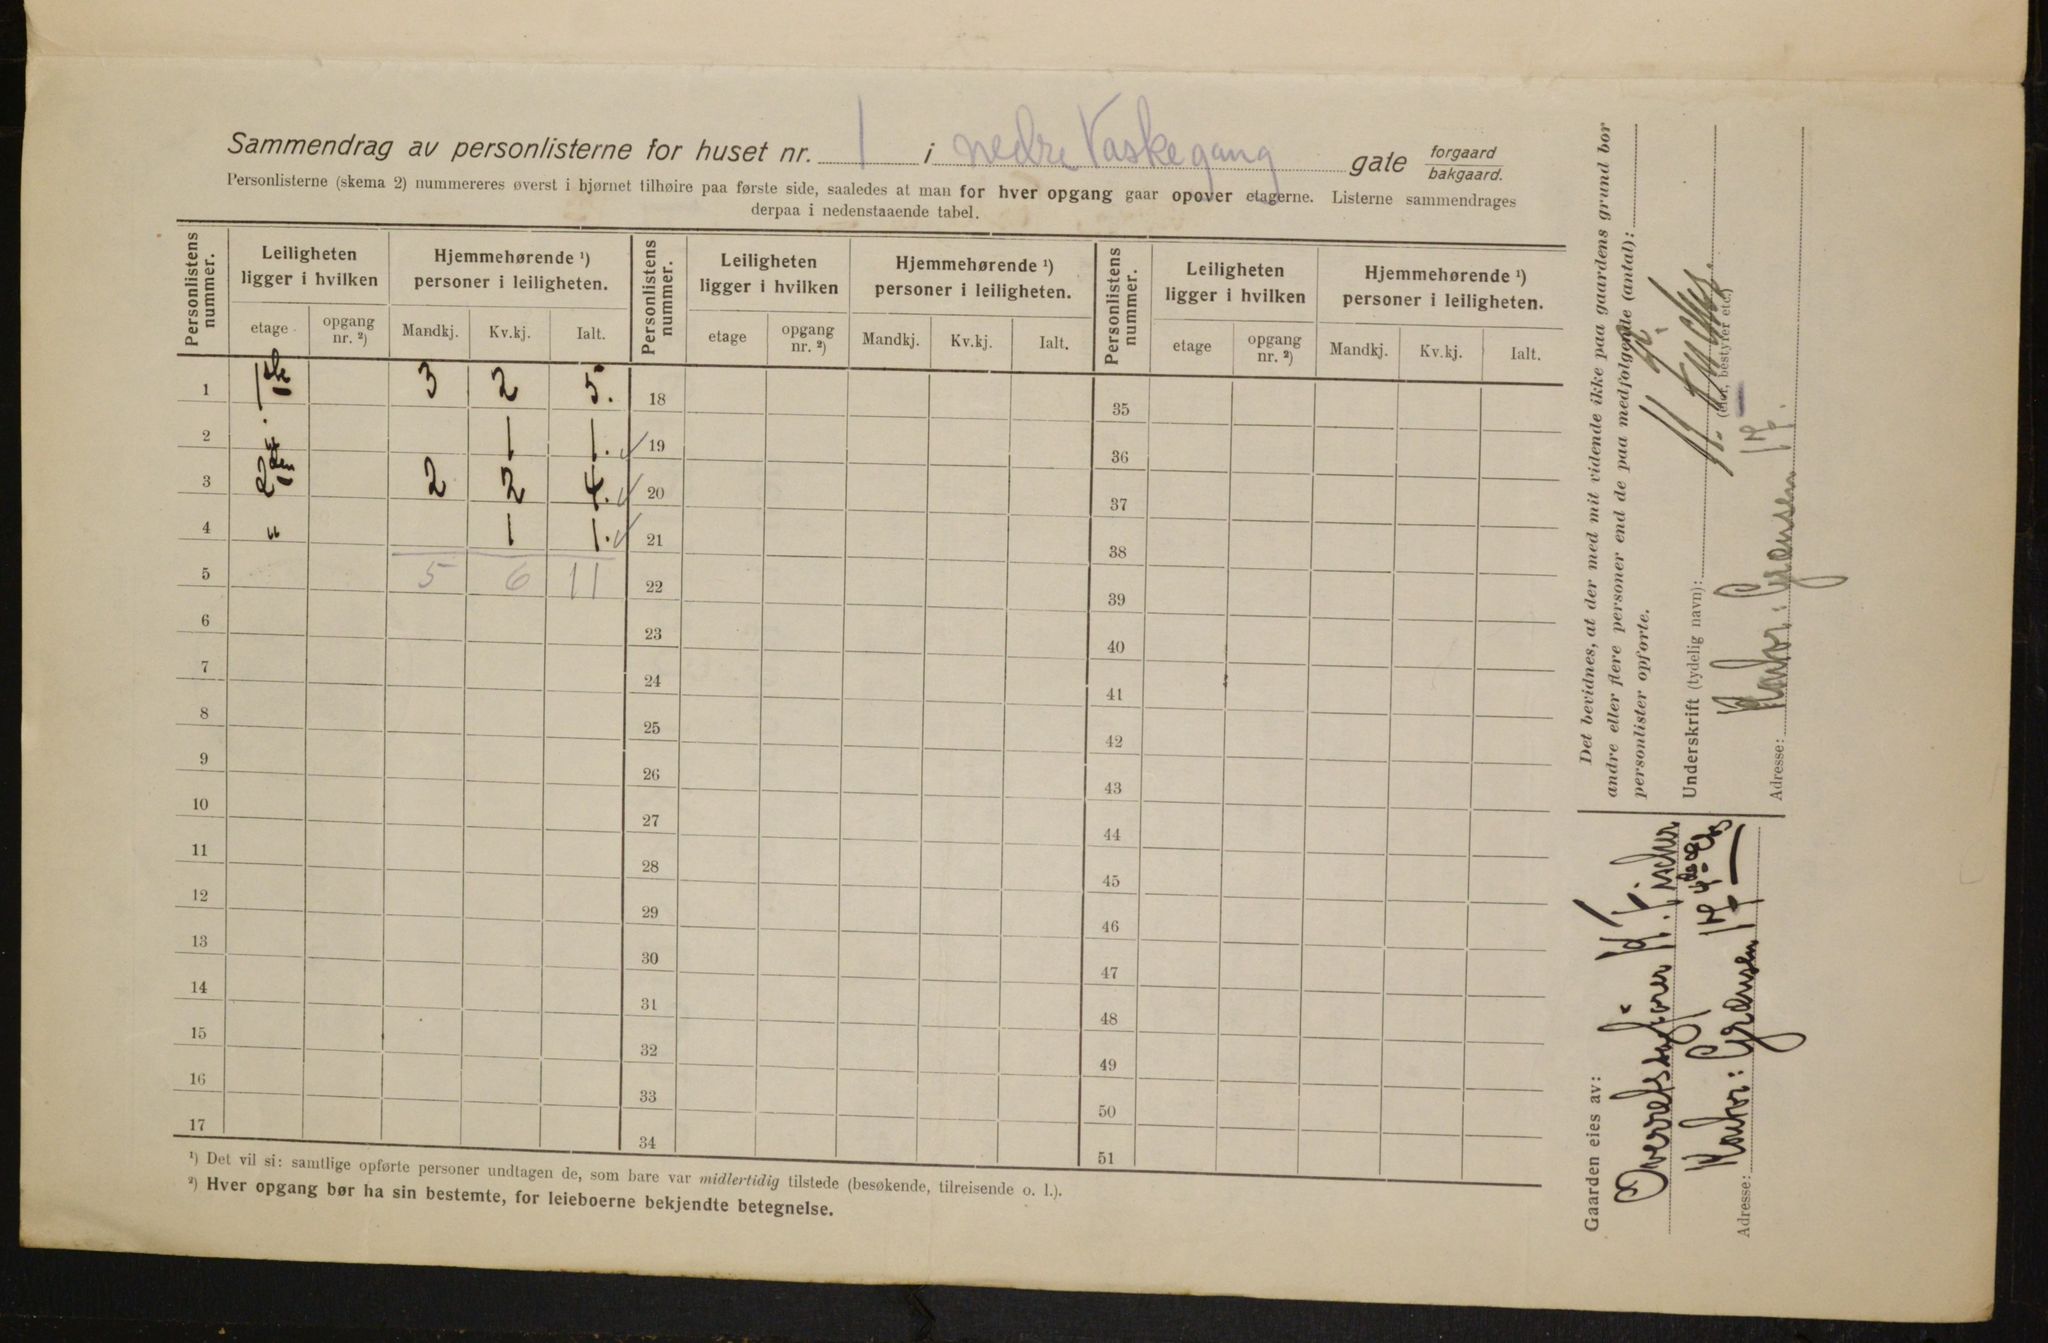 Sammendrag av personlisterne for huset nr. 1 i nedre Vaskegang gate forgaard bakgaard.
Personlisterne (skema 2) nummereres øverst i hjørnet tilhøire paa første side, saaledes at man for hver opgang gaar opover etagerne. Listerne sammendrages
derpaa i nedenstaaende tabel.
Personlistens nummer. Leiligheten ligger i hvilken Hjemmehørende ¹) personer i leiligheten. Personlistens nummer. Leiligheten ligger i hvilken Hjemmehørende ¹) personer i leiligheten. Personlistens nummer. Leiligheten ligger i hvilken Hjemmehørende ¹) personer i leiligheten.
etage opgang nr. ²) Mandkj. Kv.kj. Ialt. etage opgang nr. ²) Mandkj. Kv.kj. Ialt. etage opgang nr. ²) Mandkj. Kv.kj. Ialt.
1 1ste 3 2 5. 18 35
2 " 1 1. 19 36
3 2den 2 2 4. 20 37
4 " 1 1. 21 38
5 5 6 11 22 39
6 23 40
7 24 41
8 25 42
9 26 43
10 27 44
11 28 45
12 29 46
13 30 47
14 31 48
15 32 49
16 33 50
17 34 51
¹) Det vil si: samtlige opførte personer undtagen de, som bare var midlertidig tilstede (besøkende, tilreisende o. l.).
²) Hver opgang bør ha sin bestemte, for leieboerne bekjendte betegnelse.
Det bevidnes, at der med mit vidende ikke paa gaardens grund bor
andre eller flere personer end de paa medfølgende (antal):
personlister opførte.
Underskrift (tydelig navn):
(eier, bestyrer etc.)
Adresse: Kontor: Grænsen 17.
Gaarden eies av:
Overretssakfører H. Fischer
Adresse: Kontor: Grænsen 17